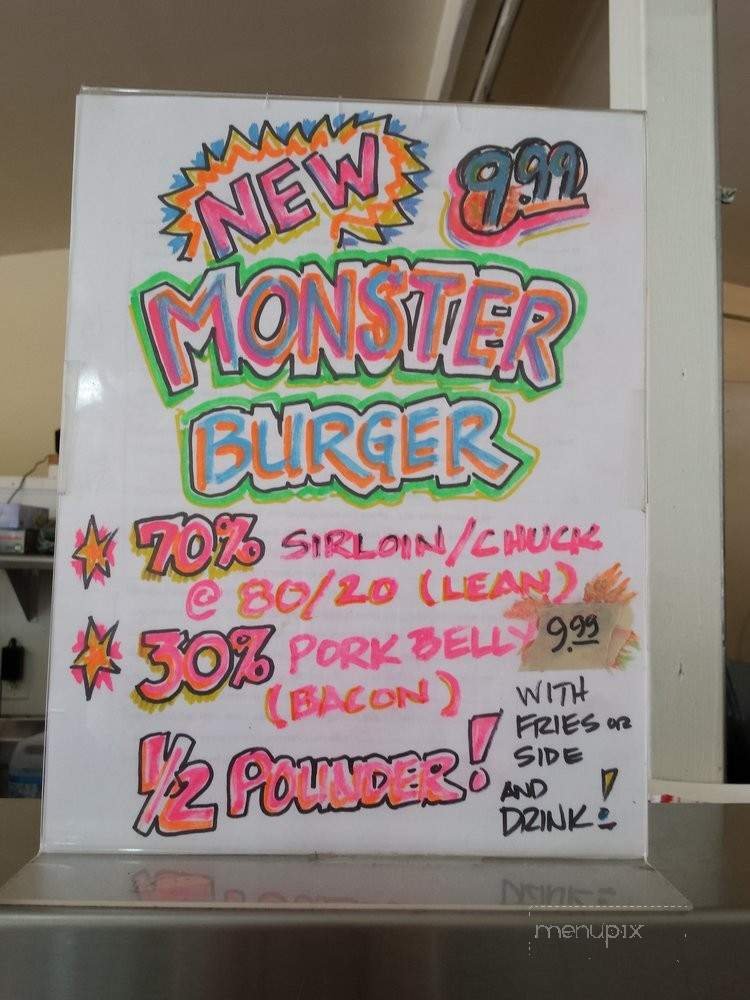 NEW 9.99
MONSTER
BURGER
70% SIRLOIN/CHUCK
@ 80/20 (LEAN)
30% PORK BELLY 9.99
(BACON)
WITH
FRIES OR
SIDE
1/2 POUNDER!
AND
DRINK!
menupix